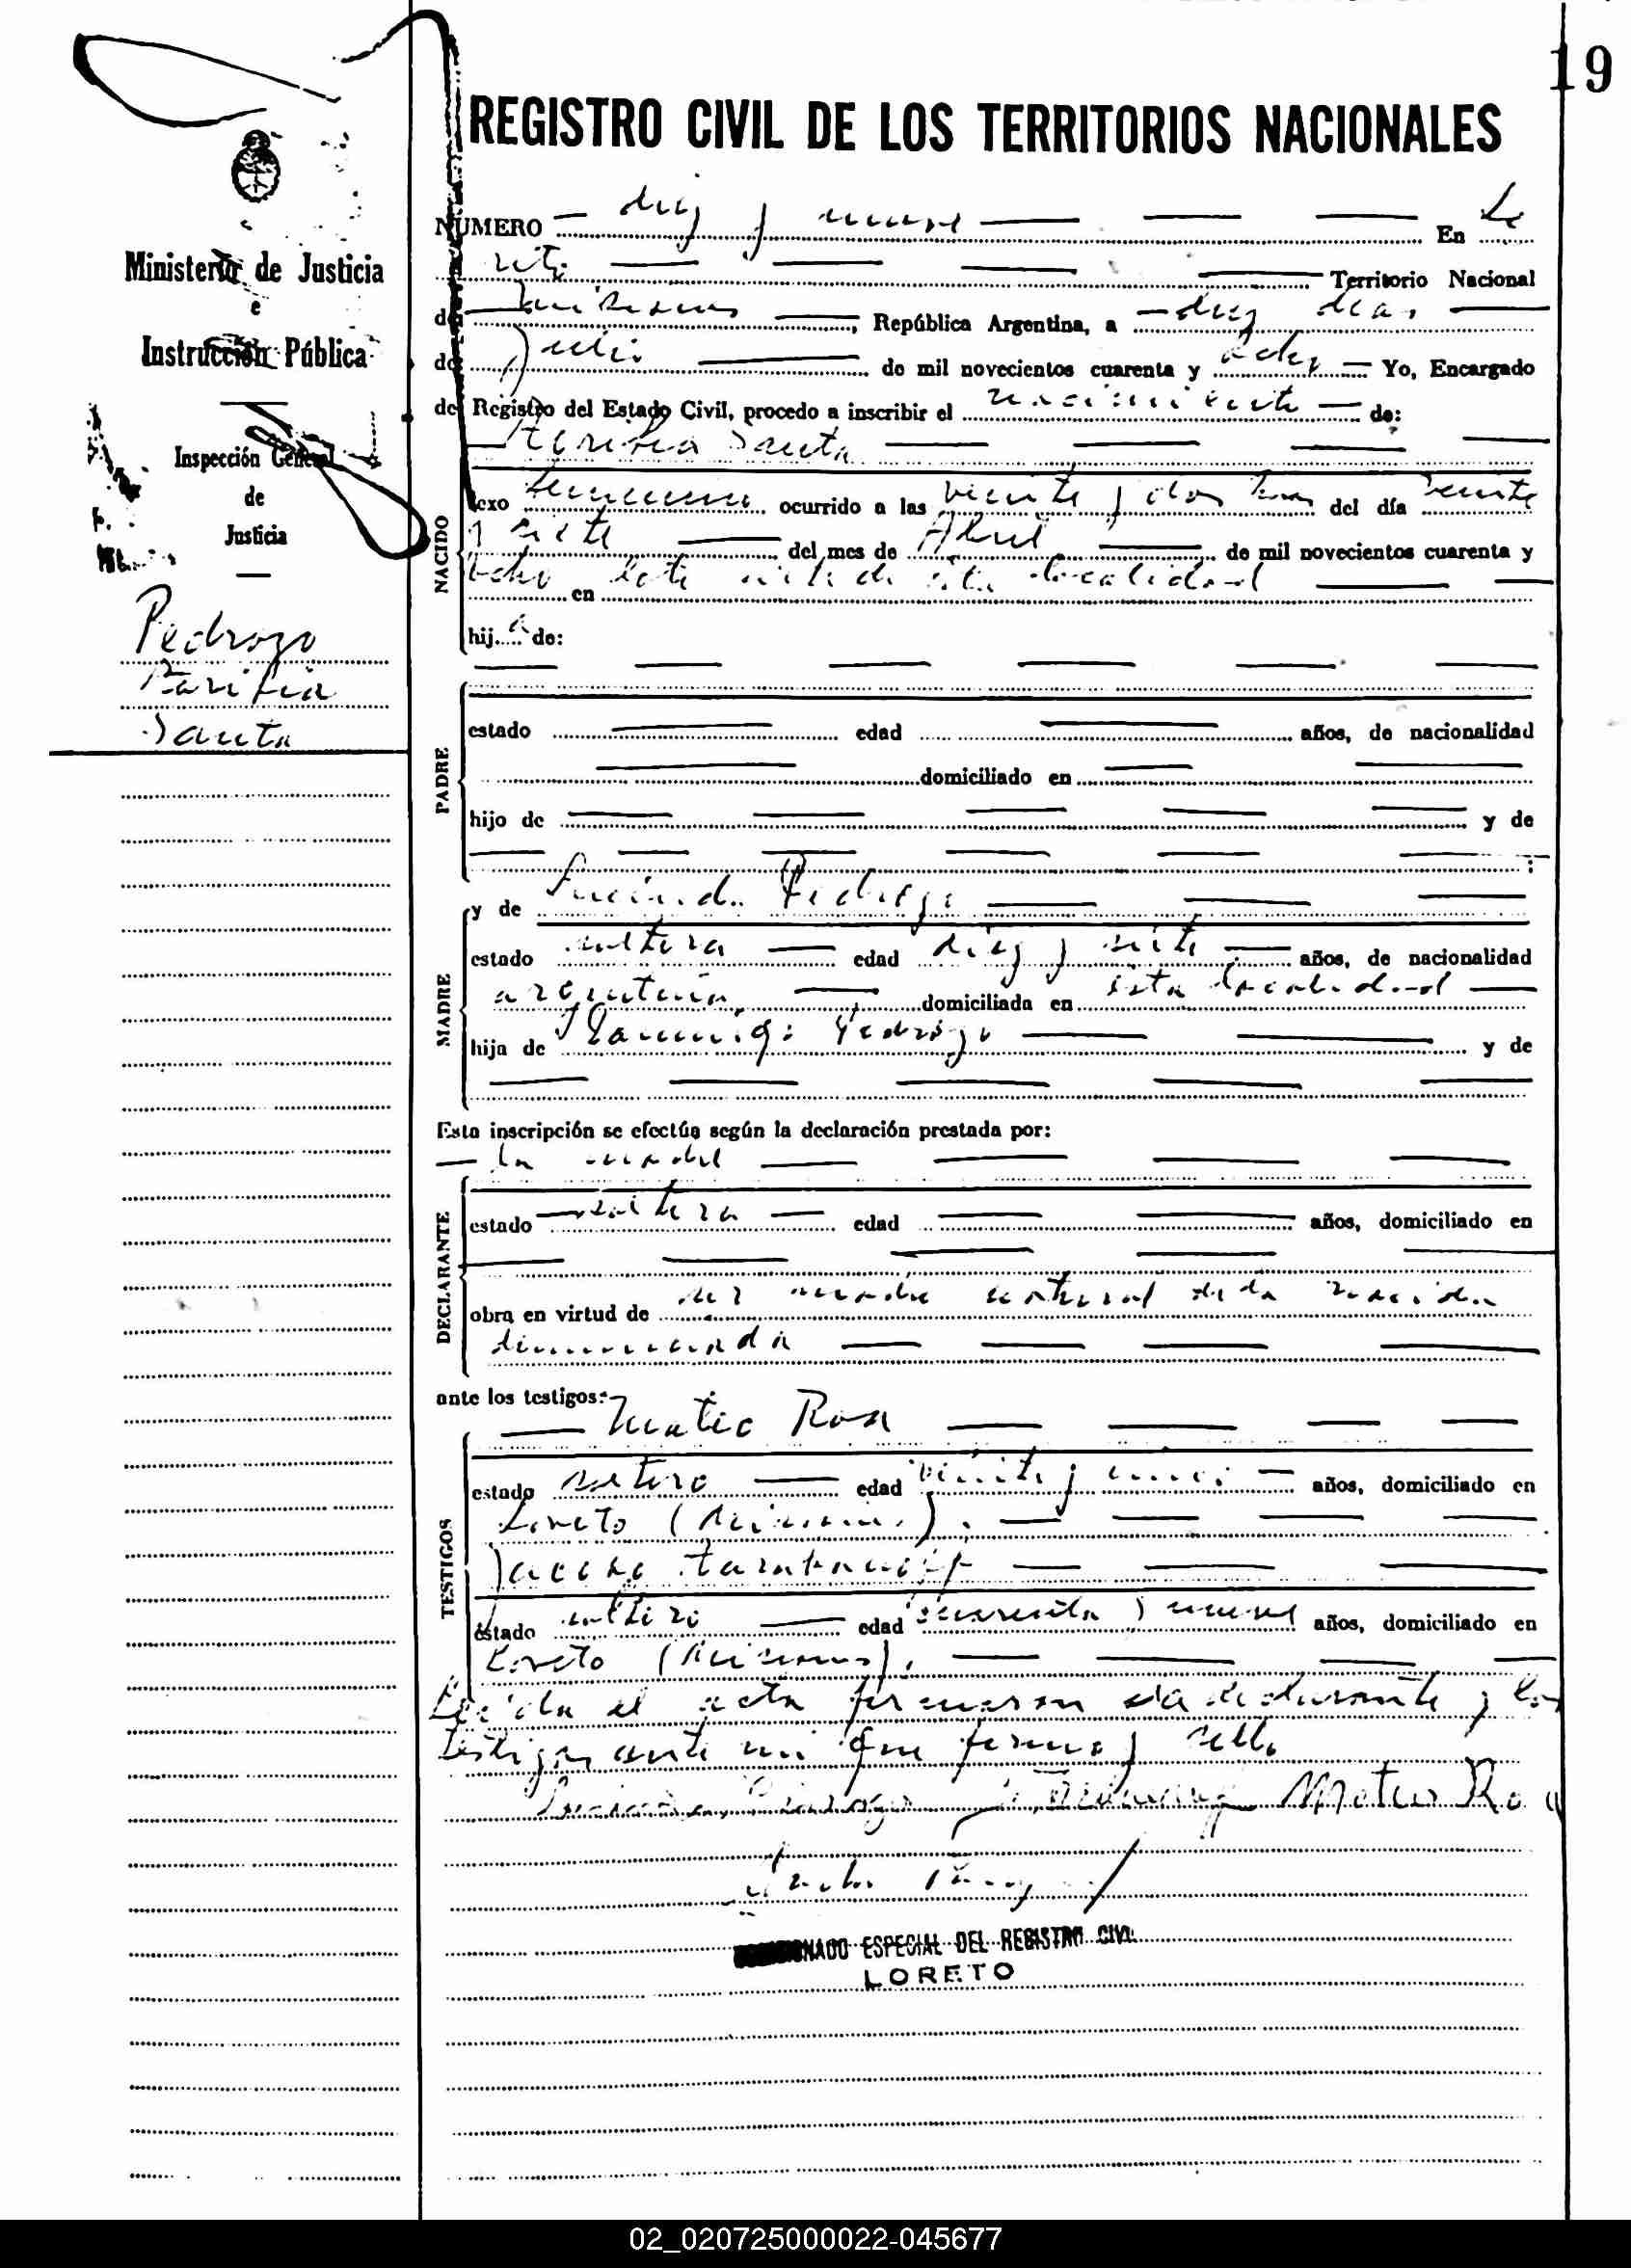 19
REGISTRO CIVIL DE LOS TERRITORIOS NACIONALES
Ministerio de Justicia
e
Instrucción Pública
Inspección General
de
Justicia
Pedrozo
Santa
NUMERO diez y nueve En Lo
reto Territorio Nacional
de Misiones, República Argentina, a diez días
de Julio de mil novecientos cuarenta y ocho Yo, Encargado
del Registro del Estado Civil, procedo a inscribir el nacimiento de:
Santa
NACIDO
sexo femenino ocurrido a las veinte y dos horas del día veinte
y siete del mes de Abril de mil novecientos cuarenta y
ocho en esta localidad
hija de:
PADRE
estado edad años, de nacionalidad
domiciliado en
hijo de y de
MADRE
y de Lucinda Pedrozo
estado soltera edad diez y siete años, de nacionalidad
argentina domiciliada en esta localidad
hija de Pedrozo y de
Esta inscripción se efectúa según la declaración prestada por:
la madre
DECLARANTE
estado soltera edad años, domiciliado en
obra en virtud de ser madre natural de la nacida
denunciada
ante los testigos:
Mateo Roa
TESTIGOS
estado soltero edad veinte y años, domiciliado en
Loreto (Misiones).
Jacobo
estado soltero edad cuarenta y nueve años, domiciliado en
Loreto (Misiones).
Leida el acta firmaron la declarante y los
testigos ante mi que firmo y sello
Lucinda Pedrozo Mateo Roa
ESPECIAL DEL REGISTRO CIVIL
LORETO
02_020725000022-045677